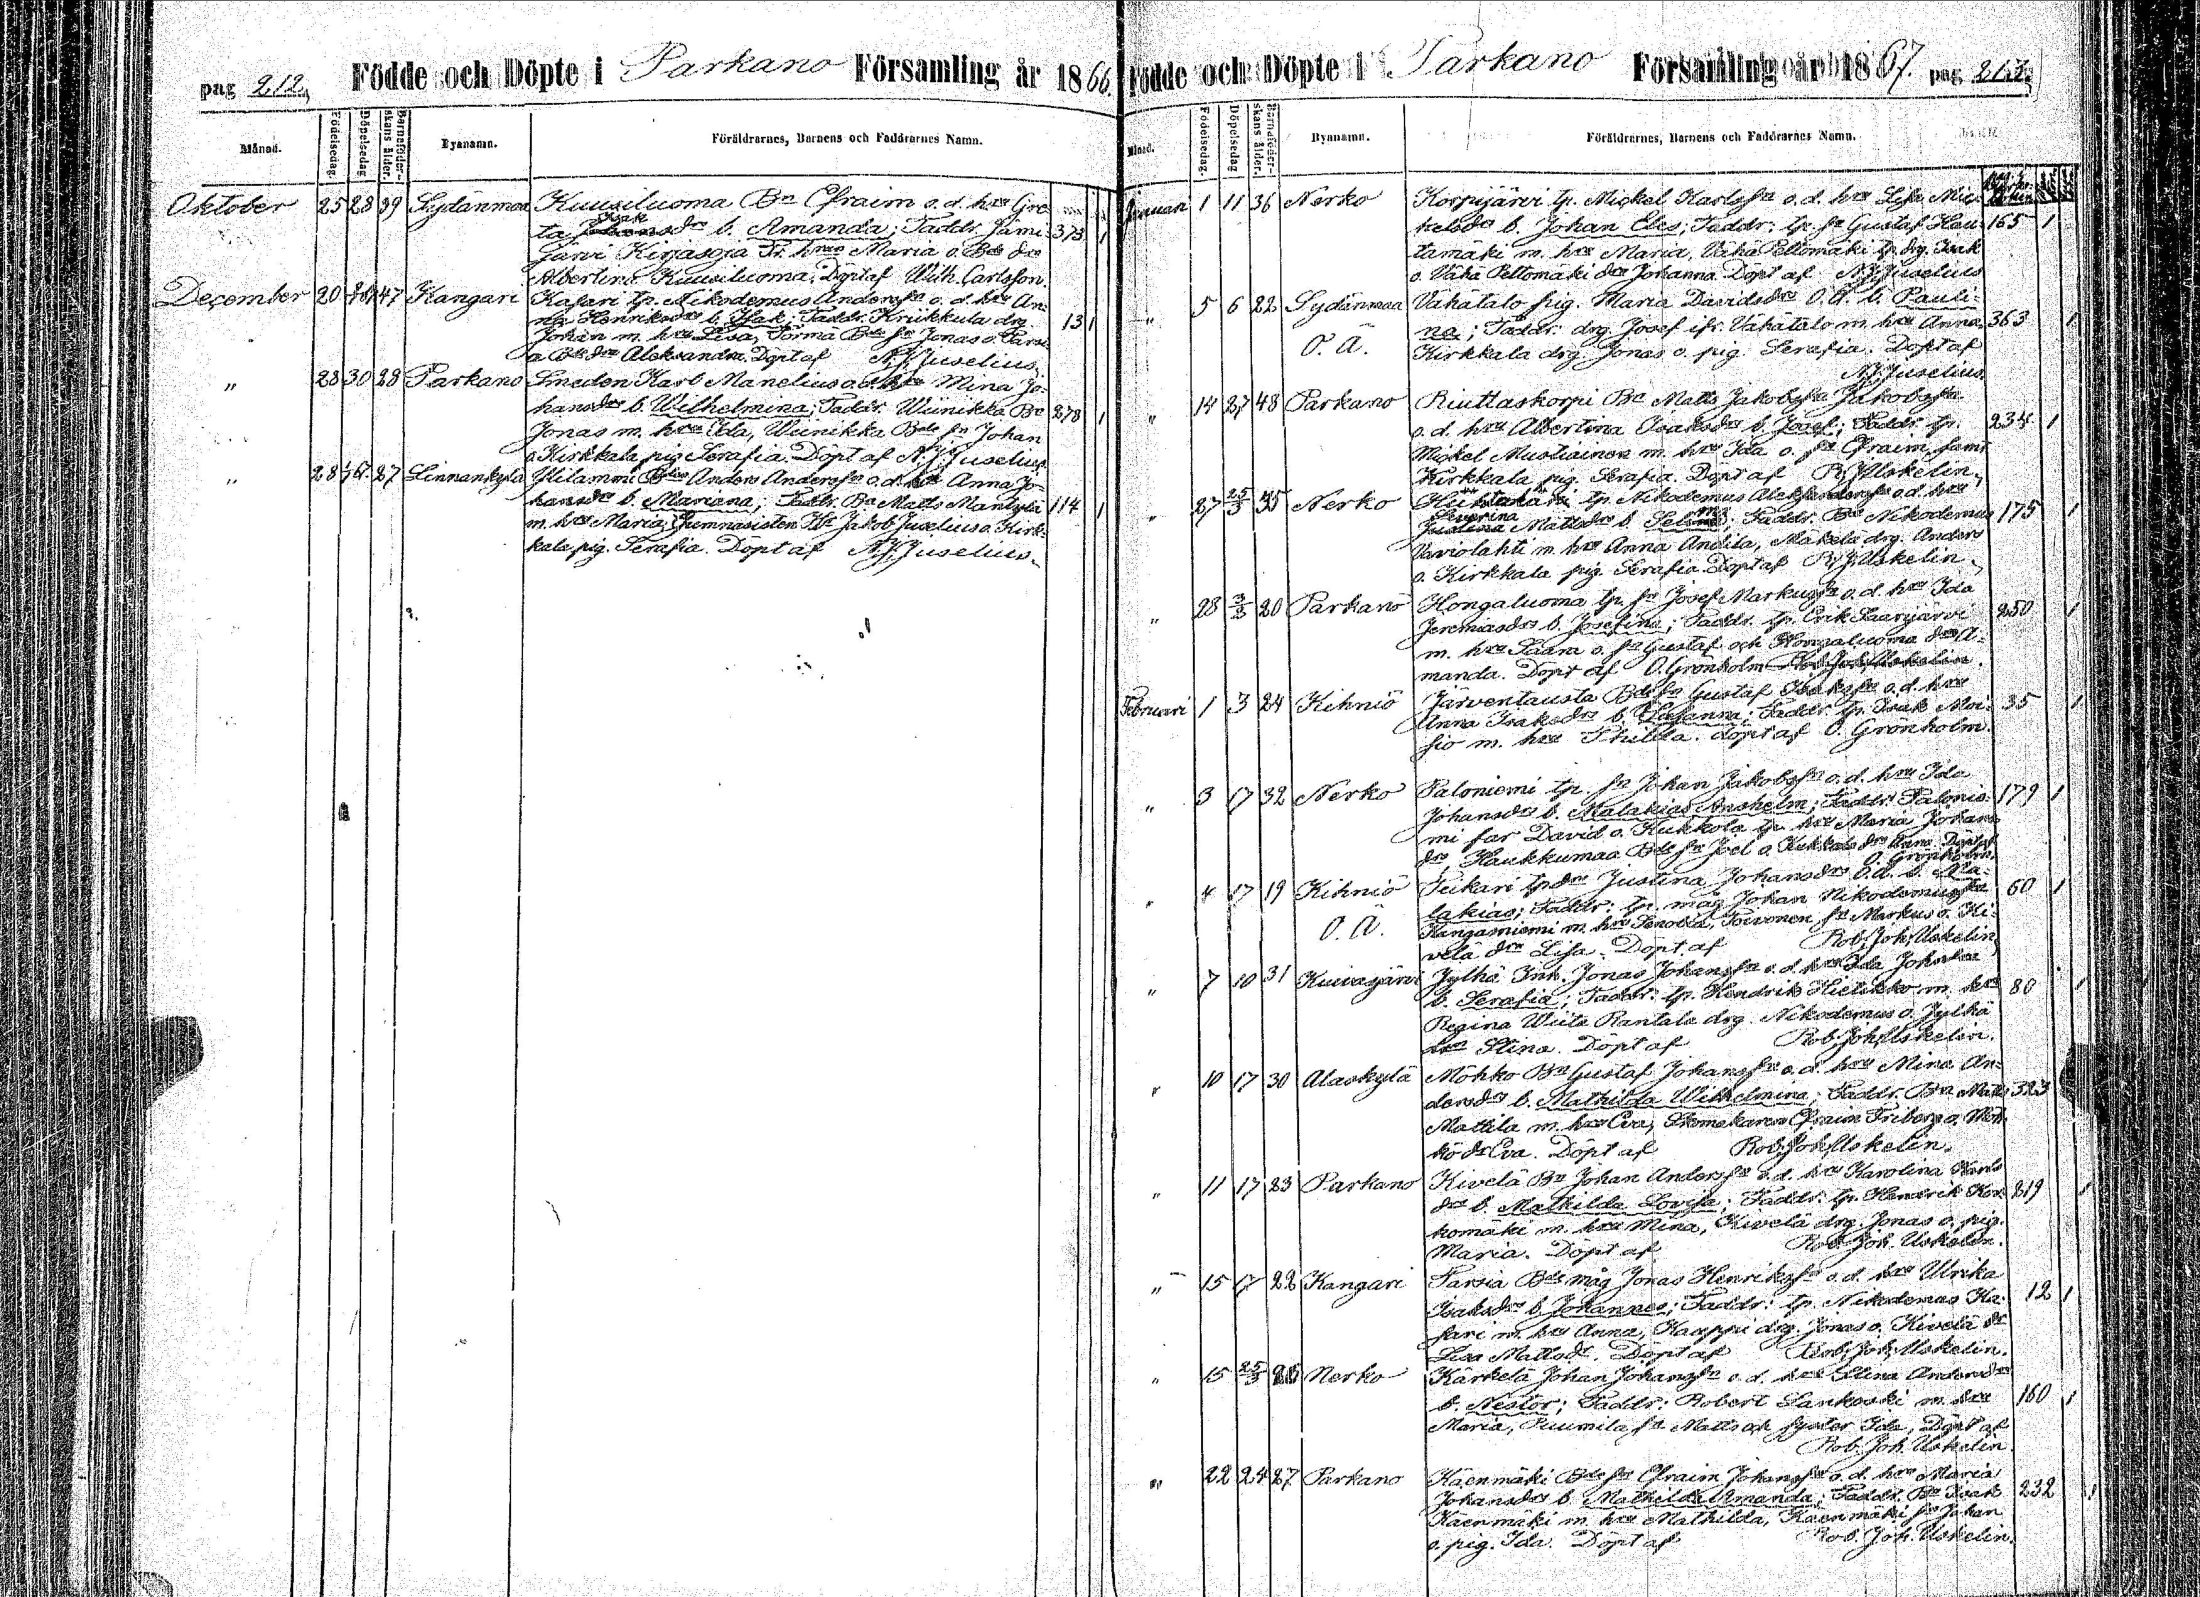 pag 212. Födde och Döpte i Parkano Församling år 1866.
Månad. Födelsedag. Döpelsedag Barnaföderskans ålder. Bynamn. Föräldrarnes, Barnens och Faddrarnes Namn.
Oktober 25 28 39 Sydänmaa Kuusiluoma Bn Efraim o. d. hru Gre-
ta Isak dr b. Amanda; Faddr. Jämi- 373 1
järvi Kirjasoja Fr. hrn Maria o. Bds dr
Albertina Kuusiluoma. Döpt af Wilh. Carlsson.
December 20 47 Kangari Kafari tp. Nikodemus Andersfn o. d. hru An-
na Henriksdr b. Isak; Faddr. Kriikkula drg 13 1
Johan m. hru Lisa, Törmä Bds fn Jonas o. Tarsi-
a Bds dr Aleksandra. Döpt af N. J. Juselius.
" 28 30 28 Parkano Smeden Karl Manelius o. d. hru Mina Jo-
hansdr b. Wilhelmina; Faddr. Wiinikka Bn 278 1
Jonas m. hru Ida, Wiinikka Bds fn Johan
o. Kirkkala pig. Serafia. Döpt af N. J. Juselius.
" 28 27 Linnankylä Ylilammi Bds Anders Andersfn o. d. hru Anna Jo-
hansdr b. Mariana; Faddr. Bn Matts Mantylä 114 1
m. hru Maria, Gymnasisten Hr Jakob Juselius o. Kirk-
kala pig. Serafia. Döpt af N. J. Juselius.
Födde och Döpte i Parkano Församling år 1867. pag 213.
Månad. Födelsedag. Döpelsedag Barnaföderskans ålder. Bynamn. Föräldrarnes, Barnens och Faddrarnes Namn.
Januari 1 11 36 Nerko Korpijärvi tp. Mickel Karlsfn o. d. hru Lisa Mic-
kelsdr b. Johan Eles; Faddr: tp. fn Gustaf Hau- 165 1
tamäki m. hru Maria, Vähä Peltomäki tp. drg. Isak
o. Vähä Peltomäki dr Johanna. Döpt af N. J. Juselius
" 5 6 22 Sydänmaa Vähätalo pig. Maria Davidsdr O. Ä. b. Pauli-
na; Faddr: drg. Josef ifr. Vähätalo m. hru Anna, 363 1
O. Ä. Kirkkala drg. Jonas o. pig. Serafia. Döpt af
N. J. Juselius.
" 14 27 48 Parkano Riuttaskorpi Bn Matts Jakobsfn
o. d. hru Albertina Isaksdr b. Josef; Faddr. tp. 234 1
Mickel Mustiainen m. hru Ida o. fn Efraim samt
Kirkkala pig. Serafia. Döpt af R. J. Uskelin.
" 27 25/3 35 Nerko tp. Nikodemus o. d. hru
Severina Mattsdr b. Selma; Faddr. Bn Nikodemus 175 1
Variolahti m. hru Anna Andila, Mäkelä drg. Anders
o. Kirkkala pig. Serafia. Döpt af R. J. Uskelin.
" 28 3/3 20 Parkano Hongaluoma tp. fn Josef Markusfn o. d. hru Ida
Jeremiasdr b. Josefina; Faddr. tp. Erik Saarijärvi 250 1
m. hru Saara o. fn Gustaf och Hongaluoma dr A-
manda. Döpt af O. Grönholm
Februari 1 3 24 Kihniö Järventausta Bds fn Gustaf Isaksfn o. d. hru
Anna Isaksdr b. Susanna; Faddr. tp. Isak Moi- 35 1
sio m. hru Thilda. Döpt af O. Grönholm.
" 3 17 32 Nerko Paloniemi tp. fn Johan Jakobsfn o. d. hru Ida
Johansdr b. Malakias Anshelm; Faddr: Palonie- 179 1
mi far David o. Kukkola tp. hru Maria Johans
dr, Haukkumaa Bds fn Joel o. Kukkala dr Anna. Döpt af
O. Grönholm.
" 4 17 19 Kihniö Peikari tp dr Justina Johansdr O. Ä. b. Ma-
lakias; Faddr: tp. måg Johan Nikodemusfn 60 1
O. Ä. Kangasniemi m. hru Senobia, Toivonen fn Markus o. Ki-
velä dr Lisa. Döpt af Rob. Joh. Uskelin
" 7 10 31 Kuivasjärvi Jylhä Inh. Jonas Johansfn o. d. hru Ida
b. Serafia; Faddr: tp. Hendrik Hietikko m. hru 80 1
Regina Wiita Rantala drg. Nikodemus o. Jylhä
Stina. Döpt af Rob. Joh. Uskelin.
" 10 17 30 Alaskylä Möhko Bn Gustaf Johansfn o. d. hru Mina An-
dersdr b. Mathilda Wilhelmina; Faddr. Bn Matts 323
Mattila m. hru Eva, Skomakaren Efraim Friberg o. Möh-
kö dr Eva. Döpt af Rob. Joh. Uskelin.
" 11 17 23 Parkano Kivelä Bn Johan Andersfn o. d. hru Karolina Karls
dr b. Mathilda Lovisa; Faddr: tp. Hendrik Kor- 219 1
komäki m. hru Mina, Kivelä drg. Jonas o. pig.
Maria. Döpt af Rob. Joh. Uskelin.
" 15 17 22 Kangari Tarsia Bds måg Jonas Henriksfn o. d. hru Ulrika
Isaksdr b. Johannes; Faddr: tp. Nikodemus Ka- 12 1
fari m. hru Anna, Kaappi drg. Jonas o. Kivelä dr
Lisa Mattsdr. Döpt af Rob. Joh. Uskelin.
" 15 25/3 Nerko Kärkelä Johan Johansfn o. d. hru Stina Andersdr
b. Nestor; Faddr: Robert Lankoski m. hru 160 1
Maria, Puumila fn Matts och syster Ida, Döpt af
Rob. Joh. Uskelin
" 22 24 27 Parkano Käenmäki Bds fn Efraim Johansfn o. d. hru Maria
Johansdr b. Mathilda Amanda; Faddr. Bn Isak 232 1
Käenmäki m. hru Mathilda, Käenmäki fn Johan
o. pig. Ida. Döpt af Rob. Joh. Uskelin.